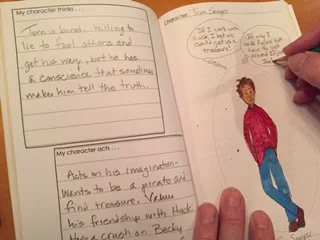 My character thinks . . .
Tom is smart. Willing to
lie to fool others and
get his way, but he has
a conscience that sometimes
makes him tell the truth.
My character acts . . .
Acts on his imagination-
Wants to be a pirate and
find treasure. Values
his friendship with Huck
Has a crush on Becky
Character: Tom Sawyer
If I
I bet we
could get us a
treasure!
If only I
could figure out
how to get
Sawyer